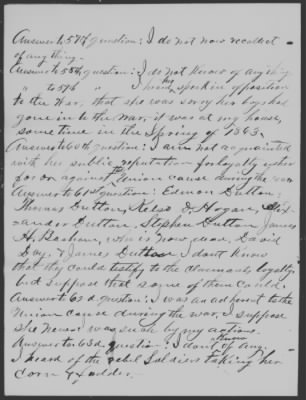 Answer to 57th question: I do not now recollect
of anything.
Answer to 58th question: I do not know of anything
" to 59th " I heard her speak in opposition
to the War, that she was sorry her boys had
gone in to the War, it was at my house,
some time in the Spring of 1863.
Answer to 60th question: I am not acquainted
with her public reputation for loyalty either
for or against the Union cause during the war
Answer to 61st question: Edmon Dutton,
Thomas Dutton, Kelso D. Hogan, Alex-
ander Dutton, Stephen Dutton James
H. Basham, who is now dead, David
Day, & James Dutton I dont know
that they could testify to the claimants loyalty,
but suppose that some of them could.
Answer to 62d question: I was an adherent to the
Union cause during the war, I suppose
she never was such by my actions.
Answer to 63d question: I don't know of any.
I heard of the rebel Soldiers taking her
corn & fodder.